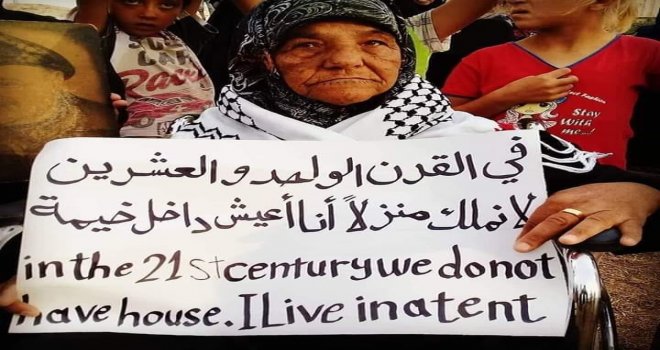 في القرن الواحد والعشرين
لا نملك منزلاً أنا أعيش داخل خيمة
in the 21st century we do not
have house. I Live in a tent
Racing
Perfect Fashion
Stay
With
me...!